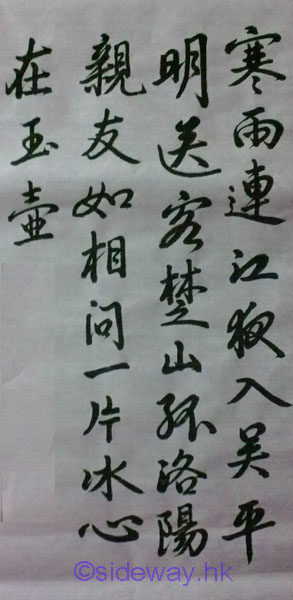 寒雨連江夜入吴平
明送客楚山孤洛陽
親友如相问一片冰心
在玉壺
©sideway.hk